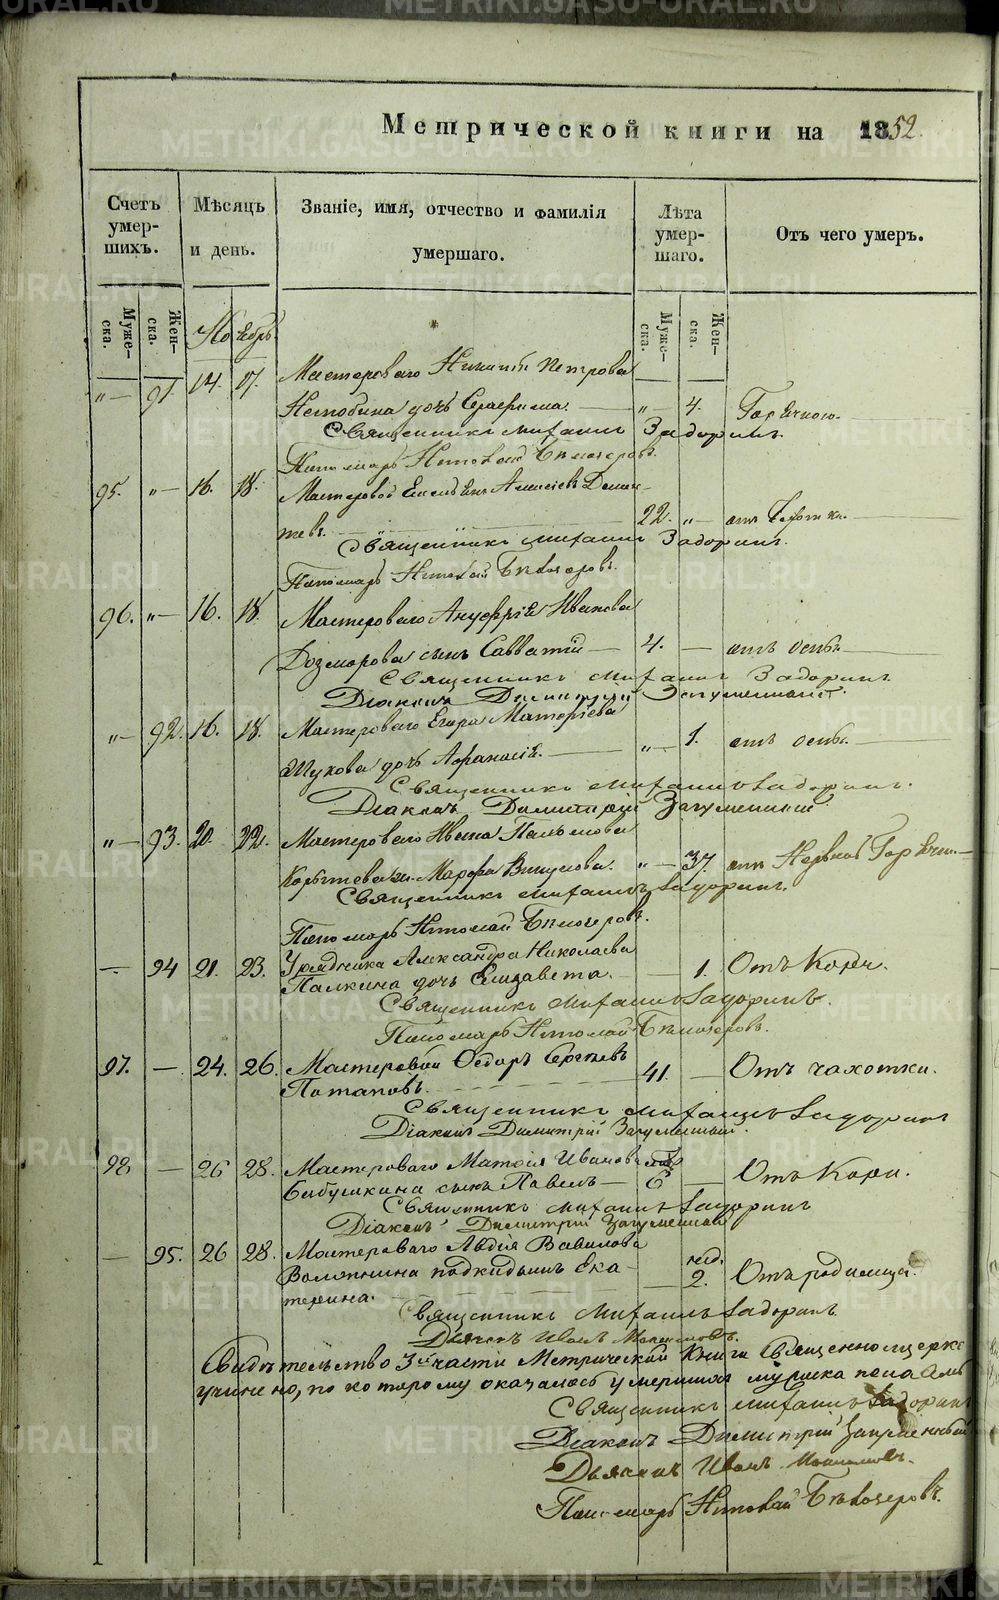 Метрической книги на 1852
Счетъ умер-шихъ.
Мѣсяцъ и день.
Званіе, имя, отчество и фамилія умершаго.
Лѣта умер-шаго.
Отъ чего умеръ.
Муже-ска.
Жен-ска.
Муже-ска.
Жен-ска.
Ноябрь
Мастероваго Никиты Петрова
„ — 91. 14. 17.
дочь Серафима. — „ — 4. Горячкою.
Священникъ Михаилъ Задоринъ.
Пономарь Николай Бѣлозеровъ.
95. „ — 16. 18. Мастеровой Алексѣевъ Демен-
тьевъ. 22. „ — отъ
Священникъ Михаилъ Задоринъ.
Пономарь Николай Бѣлозеровъ.
96. „ — 16. 18. Мастероваго Ануфрія Иванова
сынъ Савватій — 4. — отъ оспы.
Священникъ Михаилъ Задоринъ
Діаконъ Димитрій
„ — 92. 16. 18. Мастероваго Егора
Шукова дочь Афанасія. — „ — 1. отъ оспы.
Священникъ Михаилъ Задоринъ.
Діаконъ Димитрій
„ — 93. 20. 22. Мастероваго Ивана
ж. Марфа „ — 37. отъ Нервной Горячки —
Священникъ Михаилъ Задоринъ.
Пономарь Николай Бѣлозеровъ.
— 94 21. 23. Урядника Александра Николаева
Палкина дочь Елизавета. — 1. Отъ Кори.
Священникъ Михаилъ Задоринъ.
Пономарь Николай Бѣлозеровъ.
97. — 24. 26. Мастеровой Федоръ Сергѣевъ
Потаповъ. 41. — Отъ чахотки.
Священникъ Михаилъ Задоринъ
Діаконъ Димитрій
98 — 26 28. Мастероваго Матвія Иванова
Бабушкина сынъ Павелъ — 6 — Отъ Кори.
Священникъ Михаилъ Задоринъ
Діаконъ Димитрій
— 95. 26 28. Мастероваго Авдія Вавилова
подкидышъ Ека- нед.
терина. — 2. Отъ родимца.
Священникъ Михаилъ Задоринъ.
Дьячекъ Иванъ
Свидѣтельство 3й части Метрической Книги Священноцерко
учинено, по которому оказалось умершихъ мужска пола
Священникъ Михаилъ Задоринъ
Діаконъ Димитрій
Дьячекъ Иванъ
Пономарь Николай Бѣлозеровъ.
METRIKI.GASO-URAL.RU